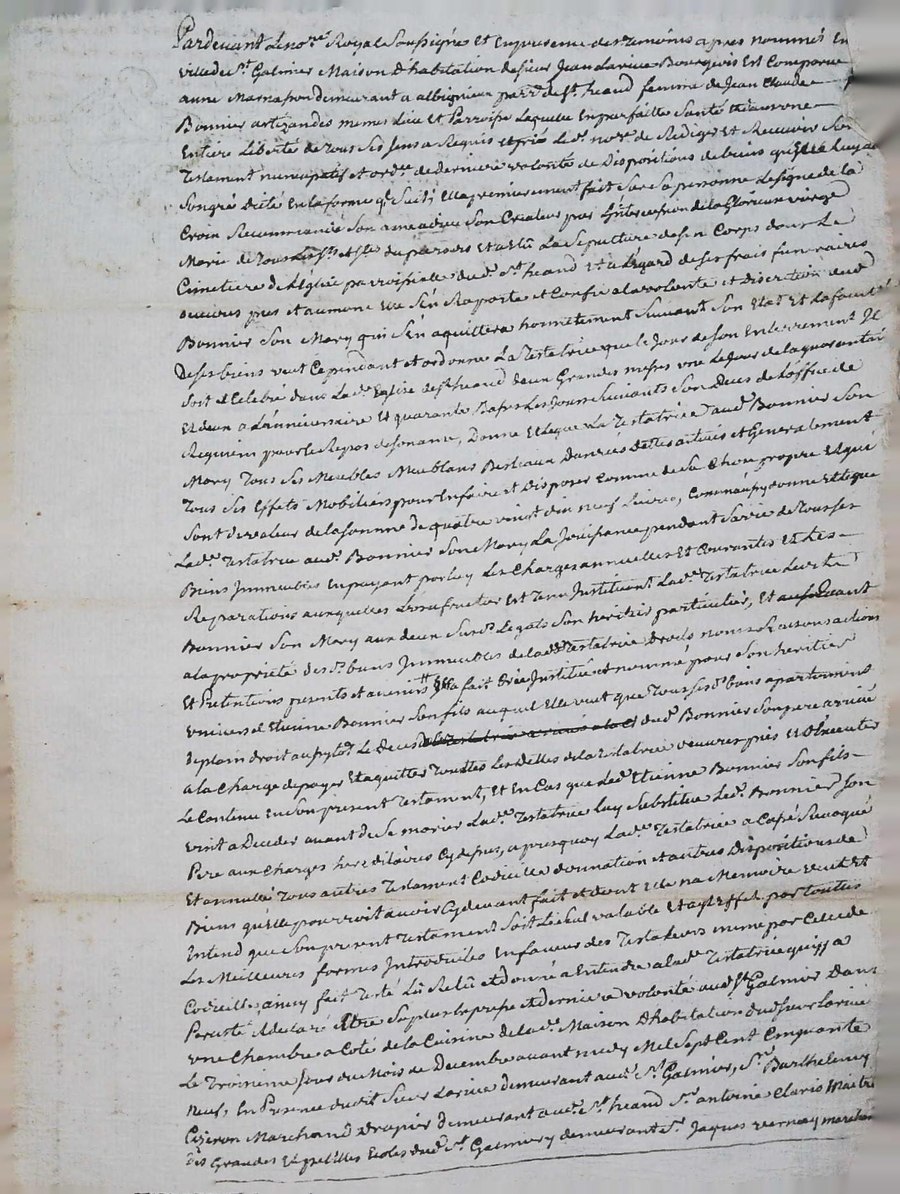 Pardevant Le no.re Royal Soussigné Et En presence des temoins apres nommés En
ville de St. Galmier Maison D'habitation de sieur Jean Larive Bourgeois Est Comparue
anne demeurant a albignieu parr.e de St. heand femme de Jean Claude
Bonnier artizan des memes lieu Et Parroisse Laquelle En parfaitte Santé
Entiere Liberté de Tous Ses Sens a Requis et prié Led. no.re de Rediger Et Recevoir Son
Testament nuncupatif et ord.re de derniere volonté de Dispositions de biens
Songré Dicté En la forme q. Suit; Ella premierement fait Sur Sa personne Le Signe de la
Croix Recommandé Son ame a dieu Son Createur par L'intercession de la Glorieuse vierge
Marie de Tous Les Sts. et Stes. du paradis et a Elû La Sepulture de Son Corps dans Le
Cimetiere de L'eglise parroissialle dud. St. heand Et a L'egard de Ses frais funeraires
oeuvres pies et aumone Elle S'en Raporte et Confie a la volonté et Discretion dud.
Bonnier Son Mary qui S'en aquittera honnetement Suivant Son Etat Et La faculté
De Ses biens veut Cependant et ordonne La Testatrice que le Jour de Son Enterrement Il
Soit Celebré dans Lad. Eglise de St. heand deux Grandes messes une Le Jour de la quarantaine
Et deux a L'anniversaire Et quarante Basses Les Jours Suivants Son Deces de L'office de
Requiem pour le Repos de Son ame, Donne Et Legue La Testatrice aud. Bonnier Son
Mary Tous Ses Meubles Meublans Bestiaux Danrées Dettes actives et Generalement
Tous Ses Effets Mobiliers pour En faire et Disposer Comme de Sa Chose propre Et qui
Sont de valeur de la Somme de quatre vingt dix neuf Livres, Comm'aussy donne Et Legue
Lad. Testatrice aud. Bonnier Son Mary La Jouissance pendant Sa vie de Tous Ses
Biens Immeubles En payant par luy Les Charges annuelles Et Courantes Et Les
Reparations auxquelles L'usufruitier Est Tenu Instituant Lad. Testatrice Led.
Bonnier Son Mary aux deux Susd. Legats Son heritier particulier, Et quant
a la proprieté desd. biens Immeubles de lad. Testatrice Droits noms Raisons actions
Et Pretentions presents et avenirs Elle a fait Crée Institué et nommé pour Son heritier
universel Etienne Bonnier Son fils auquel Elle veut que Tous Sesd. biens apartiennent
de plain droit Le Deces dud. Bonnier Son pere arrivé
a la Charge de payer Et aquitter Touttes Les Dettes de la Testatrice oeuvres pies et D'executer
Le Contenu En Son present Testament, Et En Cas que Led. Etienne Bonnier Son fils
vint a Deceder avant de Se marier Lad. Testatrice luy Substitue Led. Bonnier Son
Pere aux Charges hereditaires Cy dessus, apres quoy Lad. Testatrice a Cassé Revoqué
Et annullé Tous autres Testament Codicille donnation et autres Dispositions de
Biens qu'elle pourroit avoir Cy devant fait et dont Elle na Memoire veut Et
Entend que Son present Testament Soit Le Seul valable Et ayt Effet par Toutes
Les Meilleures formes Introduites En faveur des Testateurs meme par Celle de
Codicille, ainsy fait Testé Lû Relû et donné a Entendre a lad. Testatrice qui y a
Persisté Declaré Etre Sa plus Expresse et derniere volonté aud. St. Galmier Dans
une Chambre a Coté de la Cuisine de lad. Maison D'habitation dud. Sieur Larive
Le Troisieme Jour du Mois de Decembre avant midy Mil Sept Cent Cinquante
Neuf, En Presence dudit Sieur Larive demeurant aud. St. Galmier, Sr. Barthelemy
Cizeron Marchand Drapier demeurant aud. St. heand Sr. antoine Claris Maitre
des Grandes Et petittes Ecoles dud. St. Galmier y demeurant Sr. Jaques vernay marchand